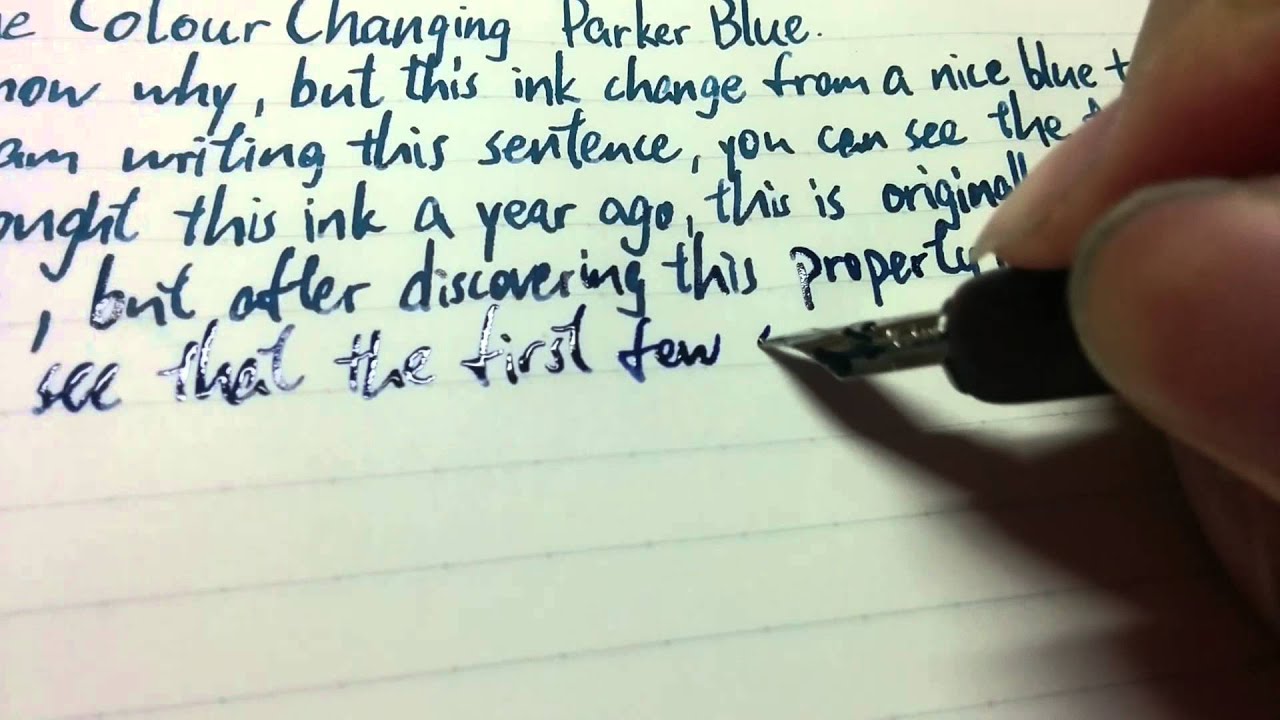 e Colour Changing Parker Blue.
now why, but this ink change from a nice blue t
am writing this sentence, you can see the
ought this ink a year ago, this is originall
, but after discovering this property
see that the first few